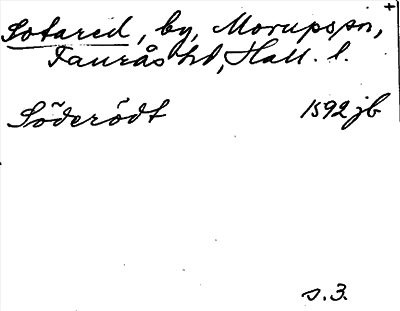 Sotared, by, Morupspn,
Faurås hd, Hall. l.
Söderödt 1592 jb
s. 3.